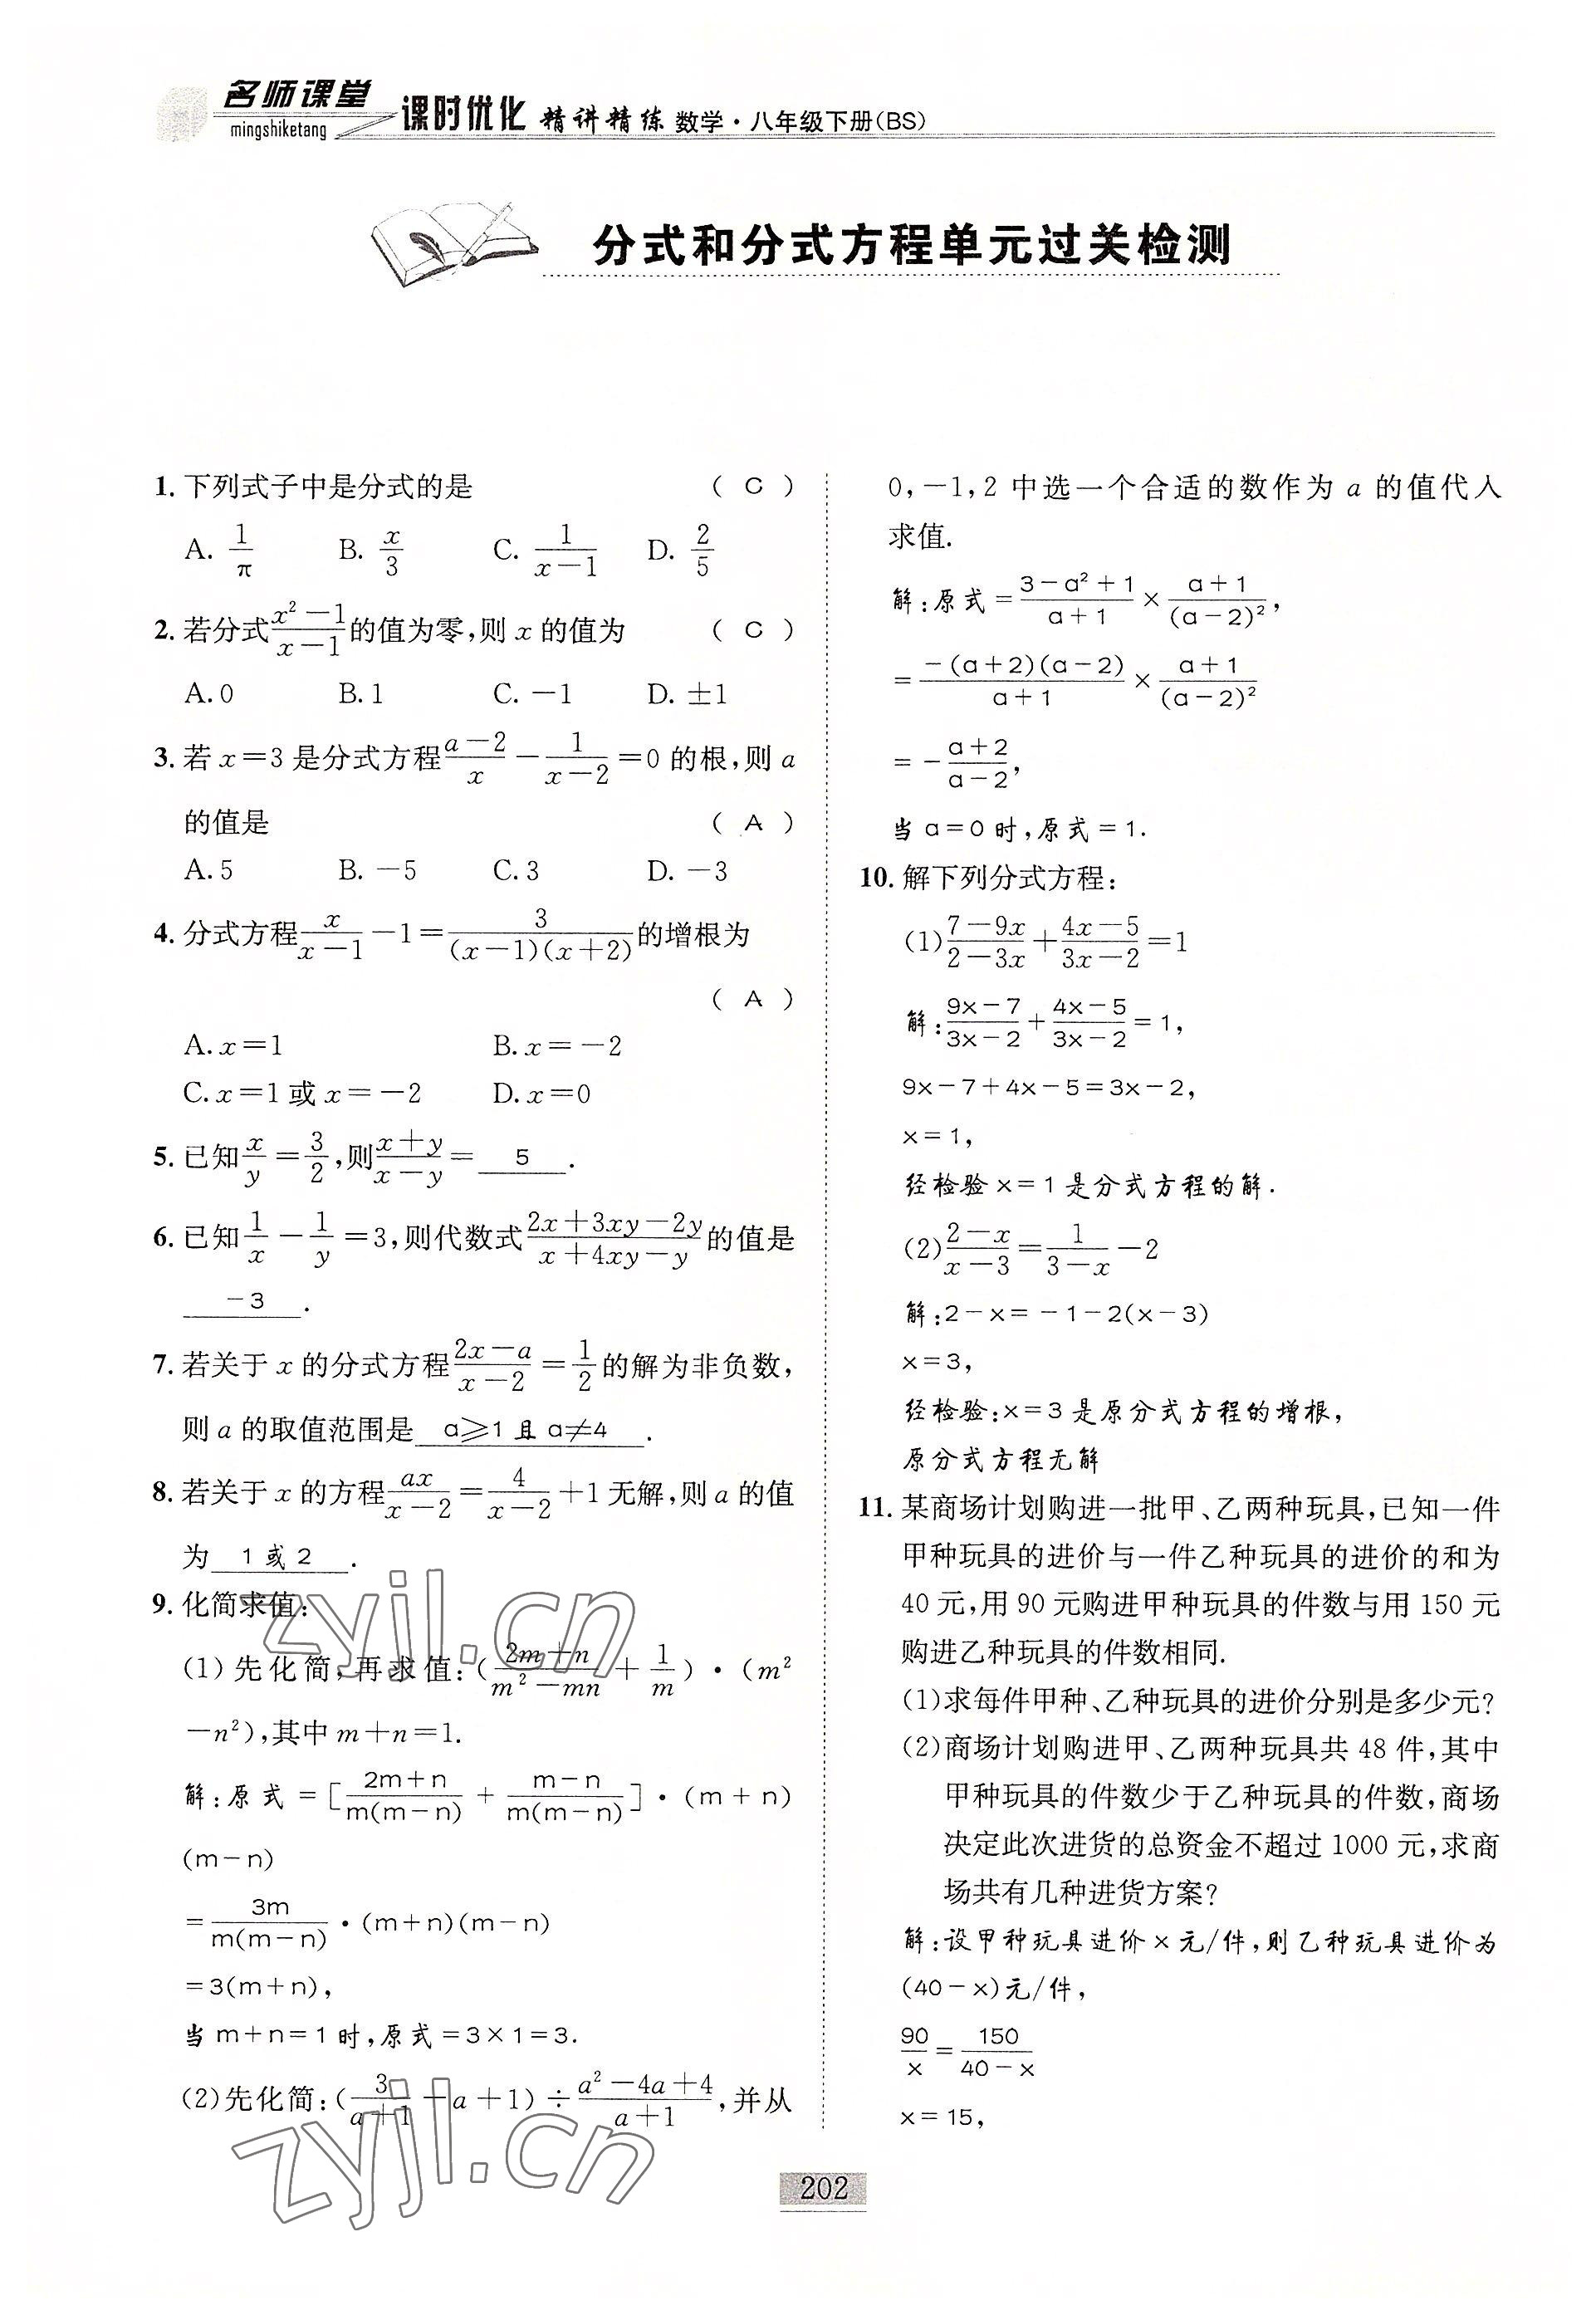 名师课堂
mingshiketang
课时优化 精讲精练 数学·八年级下册(BS)
分式和分式方程单元过关检测
1. 下列式子中是分式的是 ( C )
A. 1/π B. x/3 C. 1/(x-1) D. 2/5
2. 若分式(x²-1)/(x-1)的值为零,则 x 的值为 ( C )
A. 0 B. 1 C. -1 D. ±1
3. 若 x=3 是分式方程(a-2)/x - 1/(x-2)=0 的根,则 a
的值是 ( A )
A. 5 B. -5 C. 3 D. -3
4. 分式方程x/(x-1) -1= 3/((x-1)(x+2))的增根为
( A )
A. x=1 B. x=-2
C. x=1 或 x=-2 D. x=0
5. 已知x/y=3/2,则(x+y)/(x-y)= 5 .
6. 已知1/x - 1/y =3,则代数式(2x+3xy-2y)/(x+4xy-y)的值是
-3 .
7. 若关于 x 的分式方程(2x-a)/(x-2)=1/2的解为非负数,
则 a 的取值范围是 a≥1 且 a≠4 .
8. 若关于 x 的方程ax/(x-2)=4/(x-2)+1 无解,则 a 的值
为 1 或 2 .
9. 化简求值:
(1) 先化简,再求值:((2m+n)/(m²-mn) + 1/m)·(m²
-n²),其中 m+n=1.
解:原式=[(2m+n)/(m(m-n)) + (m-n)/(m(m-n))]·(m+n)
(m-n)
=3m/(m(m-n))·(m+n)(m-n)
=3(m+n),
当 m+n=1 时,原式=3×1=3.
(2)先化简:(3/(a+1) -a+1)÷(a²-4a+4)/(a+1),并从
0,-1,2 中选一个合适的数作为 a 的值代入
求值.
解:原式=(3-a²+1)/(a+1)×(a+1)/(a-2)²,
=-(a+2)(a-2)/(a+1)×(a+1)/(a-2)²
=-(a+2)/(a-2),
当 a=0 时,原式=1.
10. 解下列分式方程:
(1)(7-9x)/(2-3x)+(4x-5)/(3x-2)=1
解:(9x-7)/(3x-2)+(4x-5)/(3x-2)=1,
9x-7+4x-5=3x-2,
x=1,
经检验 x=1 是分式方程的解.
(2)(2-x)/(x-3)=1/(3-x)-2
解:2-x=-1-2(x-3)
x=3,
经检验:x=3 是原分式方程的增根,
原分式方程无解
11. 某商场计划购进一批甲、乙两种玩具,已知一件
甲种玩具的进价与一件乙种玩具的进价的和为
40 元,用 90 元购进甲种玩具的件数与用 150 元
购进乙种玩具的件数相同.
(1)求每件甲种、乙种玩具的进价分别是多少元?
(2)商场计划购进甲、乙两种玩具共 48 件,其中
甲种玩具的件数少于乙种玩具的件数,商场
决定此次进货的总资金不超过 1000 元,求商
场共有几种进货方案?
解:设甲种玩具进价 x 元/件,则乙种玩具进价为
(40-x)元/件,
90/x=150/(40-x)
x=15,
zyjl.cn
zyjl.cn
202